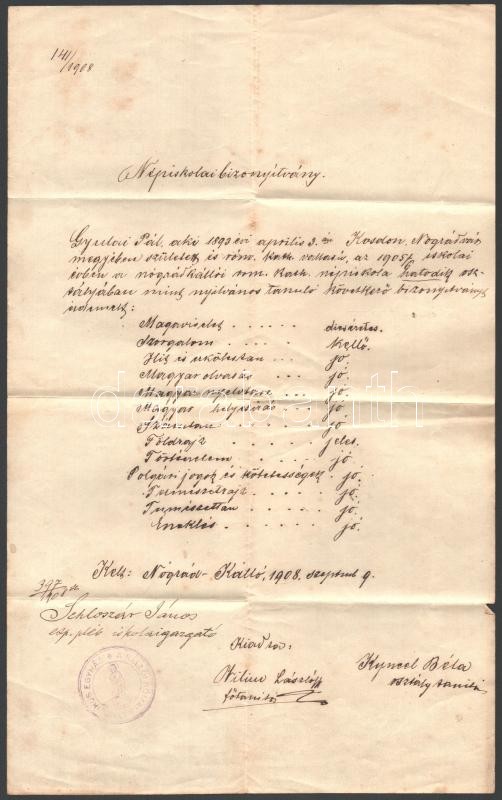 141/1908
Népiskolai bizonyítvány.
Gyulai Pál, aki 1893 évi április 3. án Kosdon, Nógrádvár
megyében született és róm. kath. vallású, az 1905/ iskolai
évben a nógrádkállói róm. kath. népiskola hatodik osz-
tályában mint nyilvános tanuló következő bizonyítványt
érdemelt:
Magaviselet . . . . . dicséretes.
Szorgalom . . . . . kellő.
Hit és erkölcstan . . . . jó.
Magyar olvasás . . . . jó.
Magyar nyelvtan . . . . jó.
Magyar helyesírás . . . . jó.
Számtan . . . . . jó.
Földrajz . . . . . jeles.
Történelem . . . . . jó.
Polgári jogok és kötelességek . jó.
Természetrajz . . . . jó.
Természettan . . . . jó.
Éneklés . . . . . jó.
Kelt: Nógrád-Kálló, 1908. szeptemb 9.
Schloszár János
esp. pléb iskolaigazgató
Kiadta:
Vilim László
főtanító
Kyncel Béla
osztálytanító
darabanth